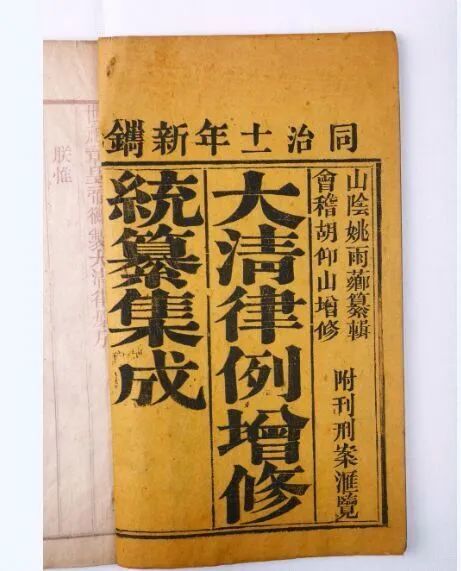 同治十一年新鐫
山陰姚雨薌纂輯
會稽胡仰山增修
附刊刑案滙覽
大清律例增修
統纂集成
世祖章皇帝御製大清律原序
朕惟